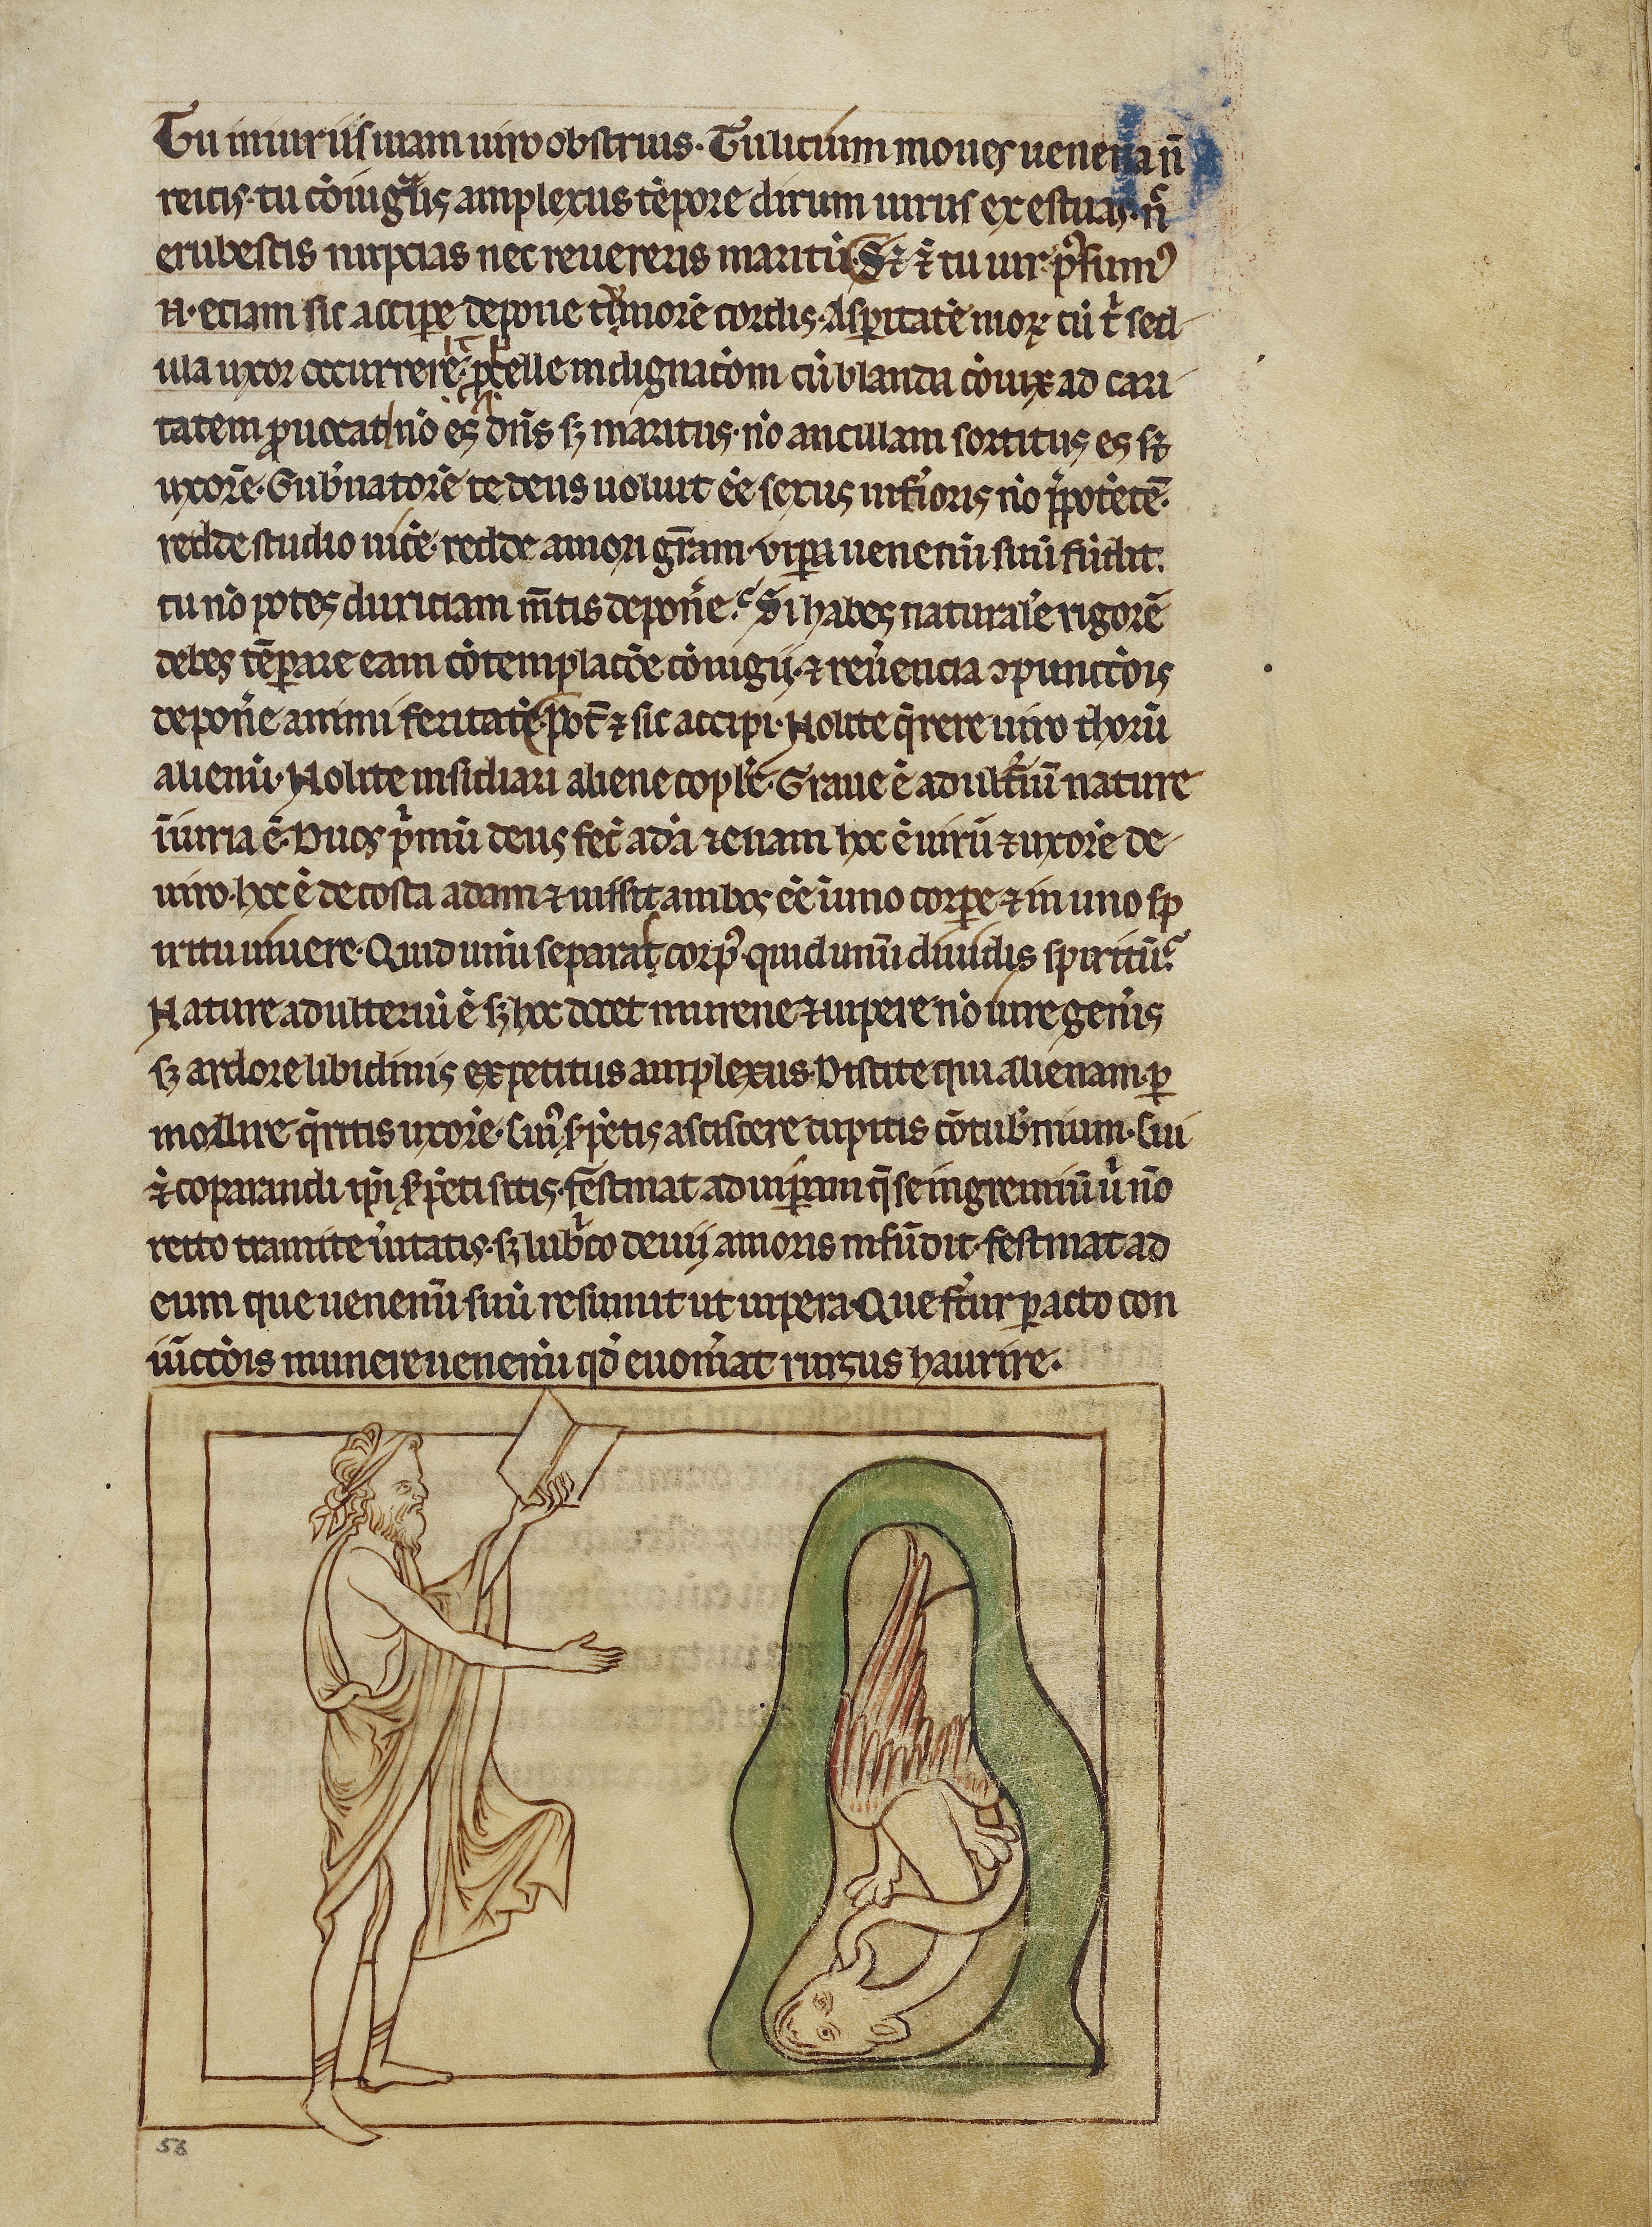 Tu iniuriis uiam uiro obstruis. Tu uicium moues uenena nō
reicis. tu cōiugalis amplexus tēpore dirum uirus exestuas. nc̄
erubescis nupcias nec reuereris maritū. Sꝫ ⁊ tu uir. p̄sumꝰ
n. eciam sic accipe depone tumorē cordis. Asperitatē moꝝ cū t̄ sed
ula uxor occurrerit. ꝓpelle indignac̄oem cū blanda cōiūx ad cari
tatem ꝓuocat nō es dn̄s sꝫ maritus. nō ancillam sortitus es sꝫ
uxorē. Gub̄natorē te deus uoluit ēē sexus inf̄ioris nō p̄potētē.
redde studio uicē. redde amori gr̄am. vipꝑa uenenū suū fūdit.
tu nō potes duriciam m̄tis depon̄e. Si habes naturalē rigorē
debes tēꝑare eam cōtemplac̄oe cōiugij. ⁊ reu̅encia ꝯpunctōis
depon̄e animi feritatē. Pot̄ ⁊ sic accipi. Nolite q̄rere uiro thorū
alienū. Nolite insidiari aliene coplē. Graue ē adult̄iū nature
iīuria ē. Duos p̄mū deus fec̄ adā ⁊ euam hoc ē uirū ⁊ uxorē de
uiro. hoc ē de costa adam ⁊ iussit ambos ēē ī uno corꝑe ⁊ in uno sp
iritu uiuere. Quid unū separas corpꝰ. quid unū diuidis spiritū.
Nature adulteriū ē sꝫ hoc docet murene ⁊ uipere nō iure gen̄is
sꝫ ardore libidinis expetitus amplexus. Discite qui alienam ꝑ
mollire q̄ritis uxorē. cui̅ s̄ꝑētis asciscere cupitis cōtub̄nium. cui
⁊ coparandi ip̄i s̄ꝑēti sitis. festinat ad uiꝑam q̄ se in gremiū u̅ nō
recto tramite u̅itatis. sꝫ lub̄co deuij amoris infūdit. festinat ad
eum que uenenū suū resumit ut uipera. Que fert̄ ꝑacto con
iūctōis munere uenenū qd̄ euom̄at rursus haurire.
56